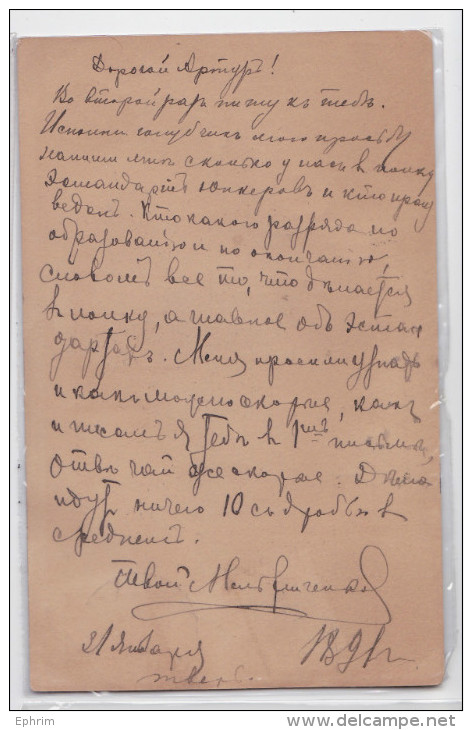 Дорогой Артуръ!
Во второй разъ пишу къ тебѣ.
Исполни голубчикъ мою просьбу
напиши мнѣ сколько у насъ в полку
эстандартъ юнкеровъ и кто произ
веденъ. Кто какого разряда по
образованію и по окончанію,
словомъ все то, что дѣлается
в полку, а главное объ эстан
дартахъ. Меня просили узнать
и какъ можно скорѣе, какъ
и писалъ я тебѣ в 1мъ письмѣ,
отвѣчай же скорѣе. Дѣла
идутъ ничего 10 съ дробью в
среднемъ.
Твой
21 января 1891 г.
Тверь.
Ephrim
www.delcampe.net